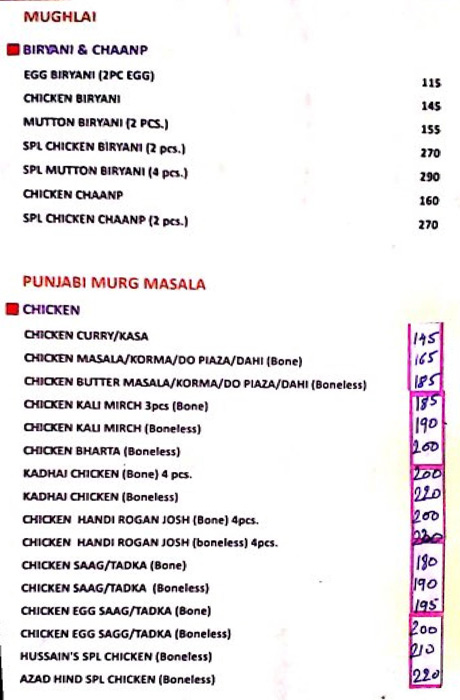 MUGHLAI
BIRYANI & CHAANP
EGG BIRYANI (2PC EGG) 115
CHICKEN BIRYANI 145
MUTTON BIRYANI (2 PCS.) 155
SPL CHICKEN BIRYANI (2 pcs.) 270
SPL MUTTON BIRYANI (4 pcs.) 290
CHICKEN CHAANP 160
SPL CHICKEN CHAANP (2 pcs.) 270
PUNJABI MURG MASALA
CHICKEN
CHICKEN CURRY/KASA 145
CHICKEN MASALA/KORMA/DO PIAZA/DAHI (Bone) 165
CHICKEN BUTTER MASALA/KORMA/DO PIAZA/DAHI (Boneless) 185
CHICKEN KALI MIRCH 3pcs (Bone) 185
CHICKEN KALI MIRCH (Boneless) 190
CHICKEN BHARTA (Boneless) 200
KADHAI CHICKEN (Bone) 4 pcs. 200
KADHAI CHICKEN (Boneless) 220
CHICKEN HANDI ROGAN JOSH (Bone) 4pcs. 200
CHICKEN HANDI ROGAN JOSH (boneless) 4pcs.
CHICKEN SAAG/TADKA (Bone) 180
CHICKEN SAAG/TADKA (Boneless) 190
CHICKEN EGG SAAG/TADKA (Bone) 195
CHICKEN EGG SAGG/TADKA (Boneless) 200
HUSSAIN'S SPL CHICKEN (Boneless) 210
AZAD HIND SPL CHICKEN (Boneless) 220